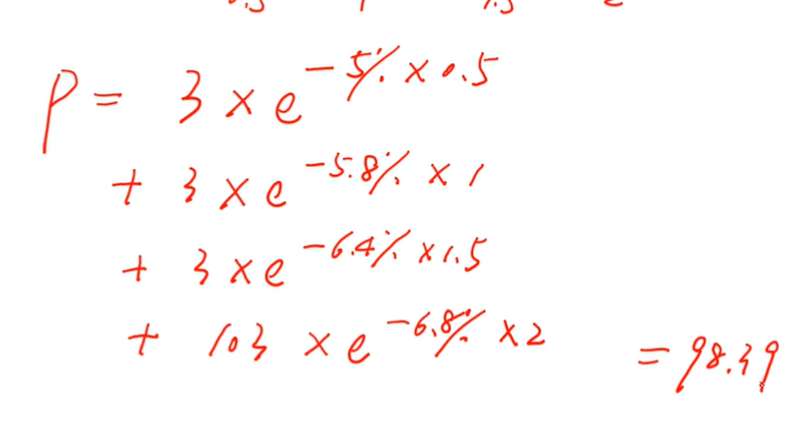 P = 3 × e^{-5% × 0.5}
+ 3 × e^{-5.8% × 1}
+ 3 × e^{-6.4% × 1.5}
+ 103 × e^{-6.8% × 2} = 98.39